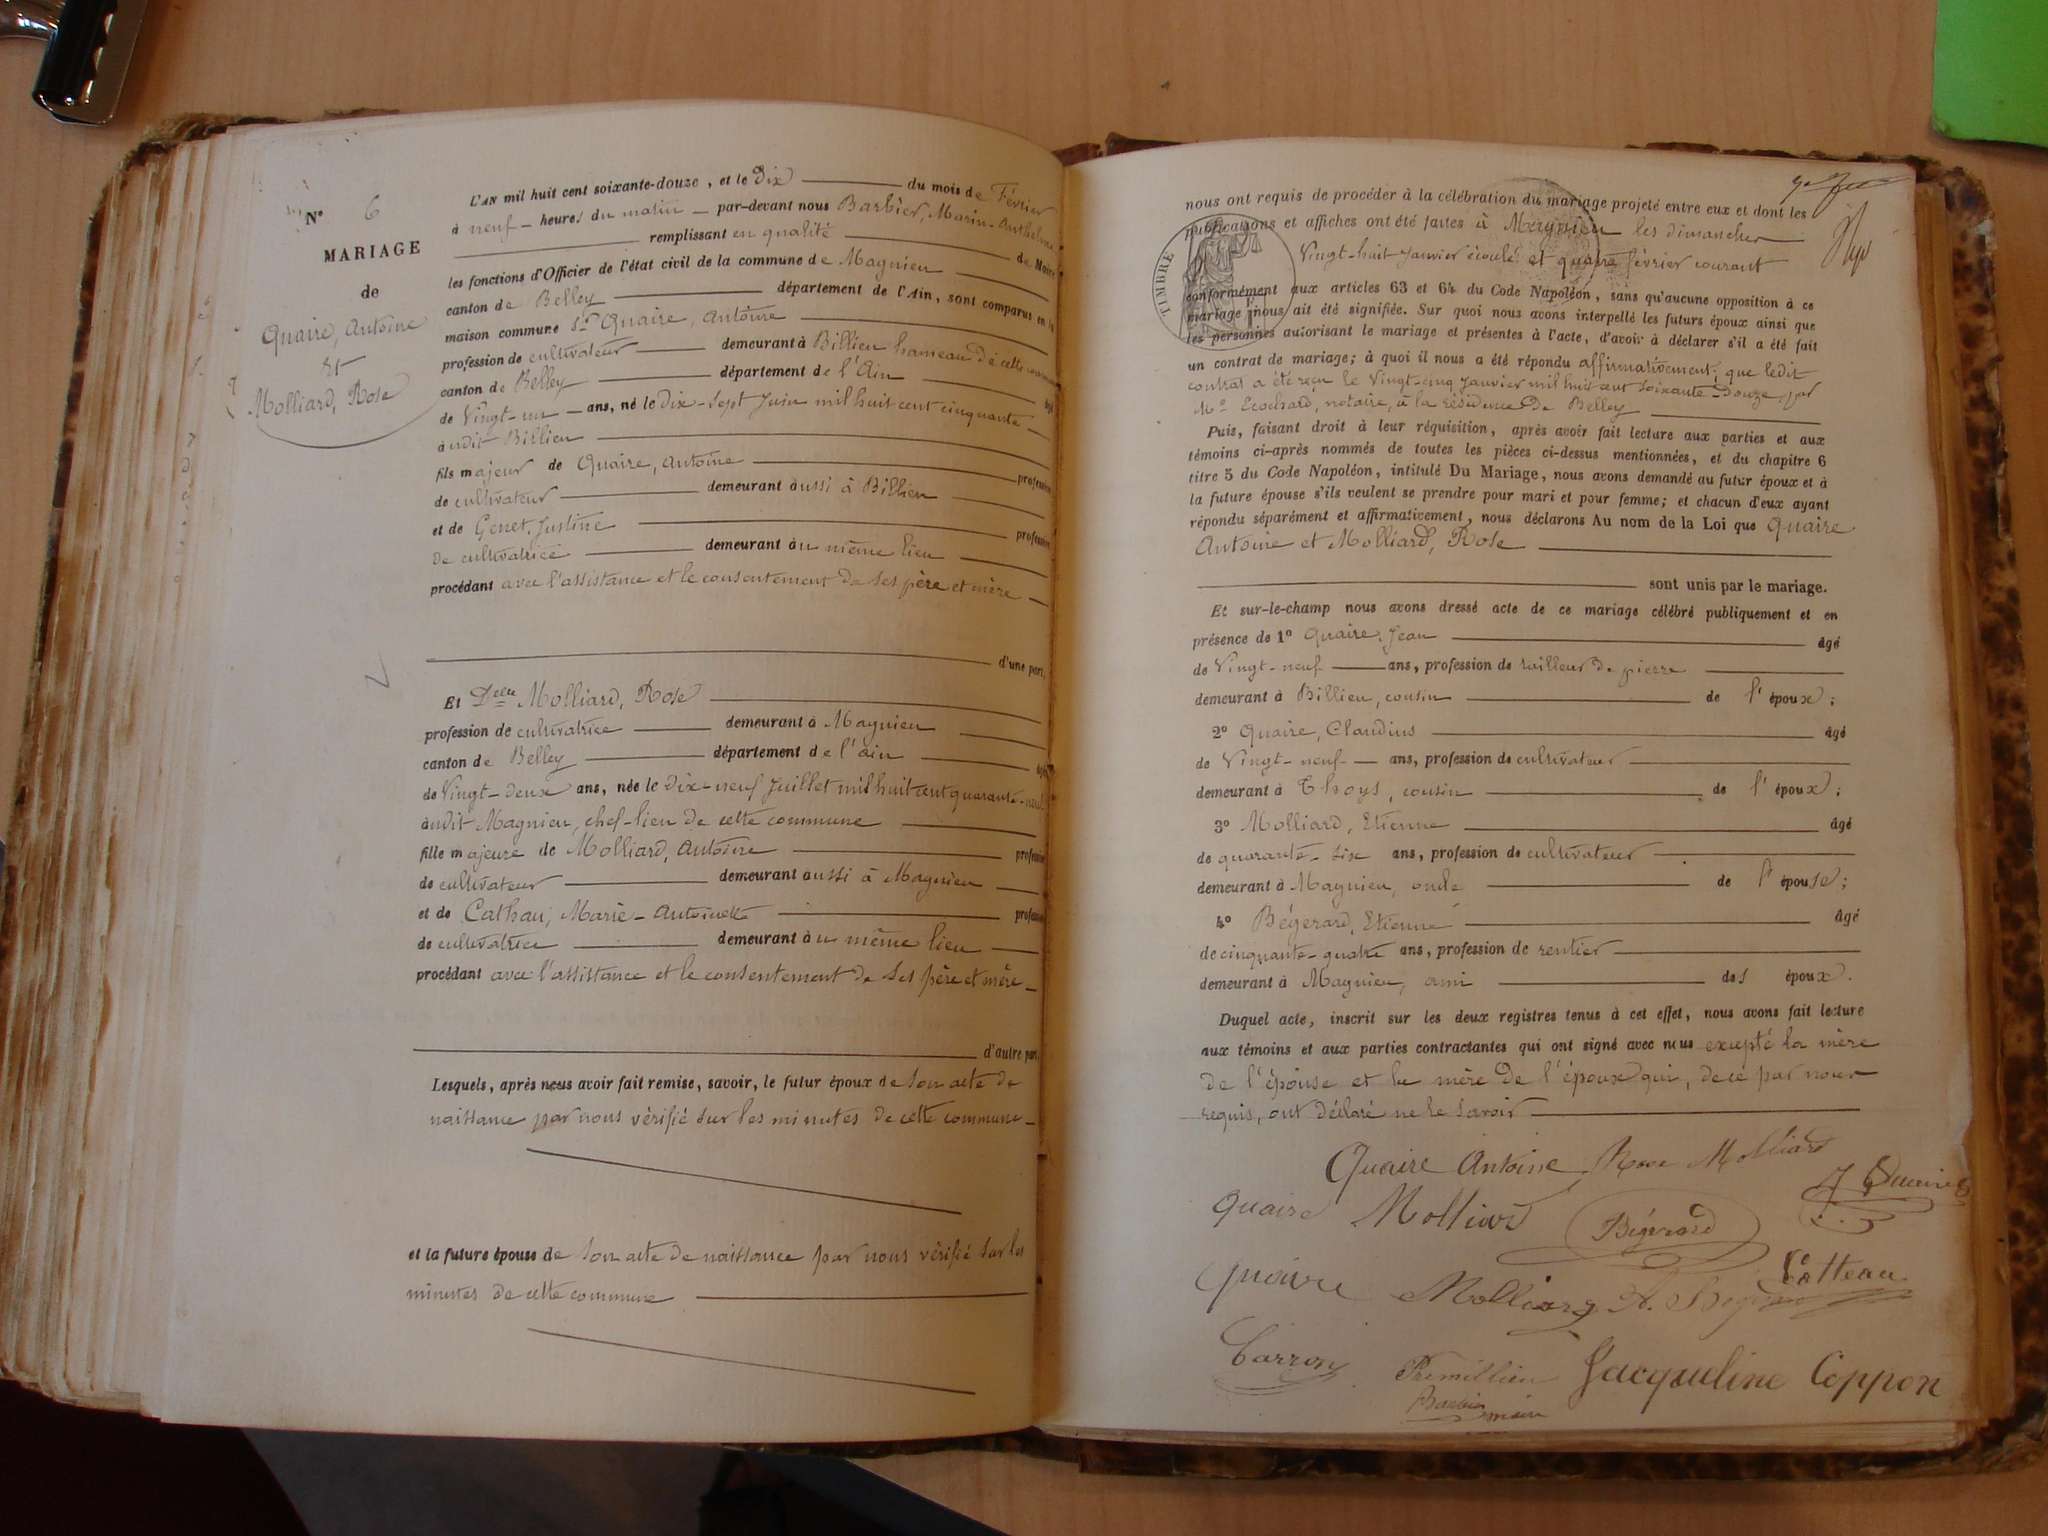 N° 6
MARIAGE
de
Quaire, Antoine
et
Molliard, Rose
L'AN mil huit cent soixante-douze, et le dix du mois de Février
à neuf heures du matin par-devant nous Barbier, Marin-Anthelme
remplissant en qualité de Maire
les fonctions d'Officier de l'état civil de la commune de Magnieu
canton de Belley département de l'Ain, sont comparus en la
maison commune Sr Quaire, Antoine
profession de cultivateur demeurant à Billieu hameau de cette commune
canton de Belley département de l'Ain âgé
de Vingt-un ans, né le dix-sept Juin mil huit cent cinquante
àudit Billieu
fils majeur de Quaire, Antoine profession
de cultivateur demeurant aussi à Billieu
et de Genet, Justine profession
de cultivatrice demeurant àu même lieu
procédant avec l'assistance et le consentement de ses père et mère
d'une part.
Et Delle Molliard, Rose
profession de cultivatrice demeurant à Magnieu
canton de Belley département de l'ain âgée
de Vingt-deux ans, née le dix-neuf Juillet mil huit cent quarante-neuf
àudit Magnieu, chef-lieu de cette commune
fille majeure de Molliard, Antoine profession
de cultivateur demeurant aussi à Magnieu
et de Cathau, Marie-Antoinette profession
de cultivatrice demeurant àu même lieu
procédant avec l'assistance et le consentement de ses père et mère
d'autre part.
Lesquels, après nous avoir fait remise, savoir, le futur époux de son acte de
naissance par nous vérifié sur les minutes de cette commune
et la future épouse de son acte de naissance par nous vérifié sur les
minutes de cette commune
nous ont requis de procéder à la célébration du mariage projeté entre eux et dont les
publications et affiches ont été faites à Magnieu les dimanches
Vingt-huit Janvier écoulé et quatre février courant
TIMBRE
conformément aux articles 63 et 64 du Code Napoléon, sans qu'aucune opposition à ce
mariage nous ait été signifiée. Sur quoi nous avons interpellé les futurs époux ainsi que
les personnes autorisant le mariage et présentes à l'acte, d'avoir à déclarer s'il a été fait
un contrat de mariage; à quoi il nous a été répondu affirmativement; que ledit
contrat a été reçu le Vingt-cinq Janvier mil huit cent soixante-douze, par
Me Ecochard, notaire, à la résidence de Belley
Puis, faisant droit à leur réquisition, après avoir fait lecture aux parties et aux
témoins ci-après nommés de toutes les pièces ci-dessus mentionnées, et du chapitre 6
titre 5 du Code Napoléon, intitulé Du Mariage, nous avons demandé au futur époux et à
la future épouse s'ils veulent se prendre pour mari et pour femme; et chacun d'eux ayant
répondu séparément et affirmativement, nous déclarons Au nom de la Loi que Quaire
Antoine et Molliard, Rose
sont unis par le mariage.
Et sur-le-champ nous avons dressé acte de ce mariage célébré publiquement et en
présence de 1° Quaire, Jean âgé
de Vingt-neuf ans, profession de tailleur de pierre
demeurant à Billieu, cousin de l'époux;
2° Quaire, Claudius âgé
de Vingt-neuf ans, profession de cultivateur
demeurant à Thoys, cousin de l'époux;
3° Molliard, Etienne âgé
de quarante-six ans, profession de cultivateur
demeurant à Magnieu, oncle de l'épouse;
4° Bégerard, Etienne âgé
de cinquante-quatre ans, profession de rentier
demeurant à Magnieu, ami des époux.
Duquel acte, inscrit sur les deux registres tenus à cet effet, nous avons fait lecture
aux témoins et aux parties contractantes qui ont signé avec nous excepté la mère
de l'épouse et la mère de l'époux qui, de ce par nous
requis, ont déclaré ne le savoir
Quaire Antoine Rose Molliard
J Quaire
Quaire Molliard Bégerard
Quaire Molliard
Carron Premillieu Jacqueline Coppon
Barbier maire